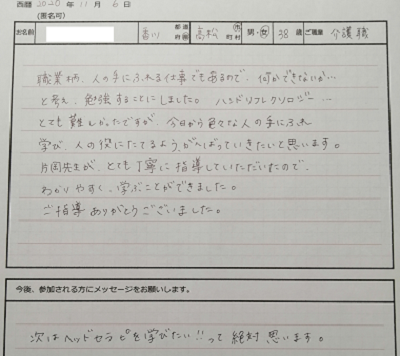 西暦 2020 年 11 月 6 日
(匿名可)
お名前 香川 都道府県 高松 市町村 男・女 38 歳 ご職業 介護職
職業柄、人の手にふれる仕事でもあるので、何かできないか…
と考え、勉強することにしました。ハンドリフレクソロジー…
とても難しかったですが、今日から色々な人の手にふれ
学び、人の役にたてるよう、がんばっていきたいと思います。
片岡先生が、とても丁寧に指導していただいたので、
わかりやすく、学ぶことができました。
ご指導ありがとうございました。
今後、参加される方にメッセージをお願いします。
次はヘッドセラピを学びたい!!って絶対思います。